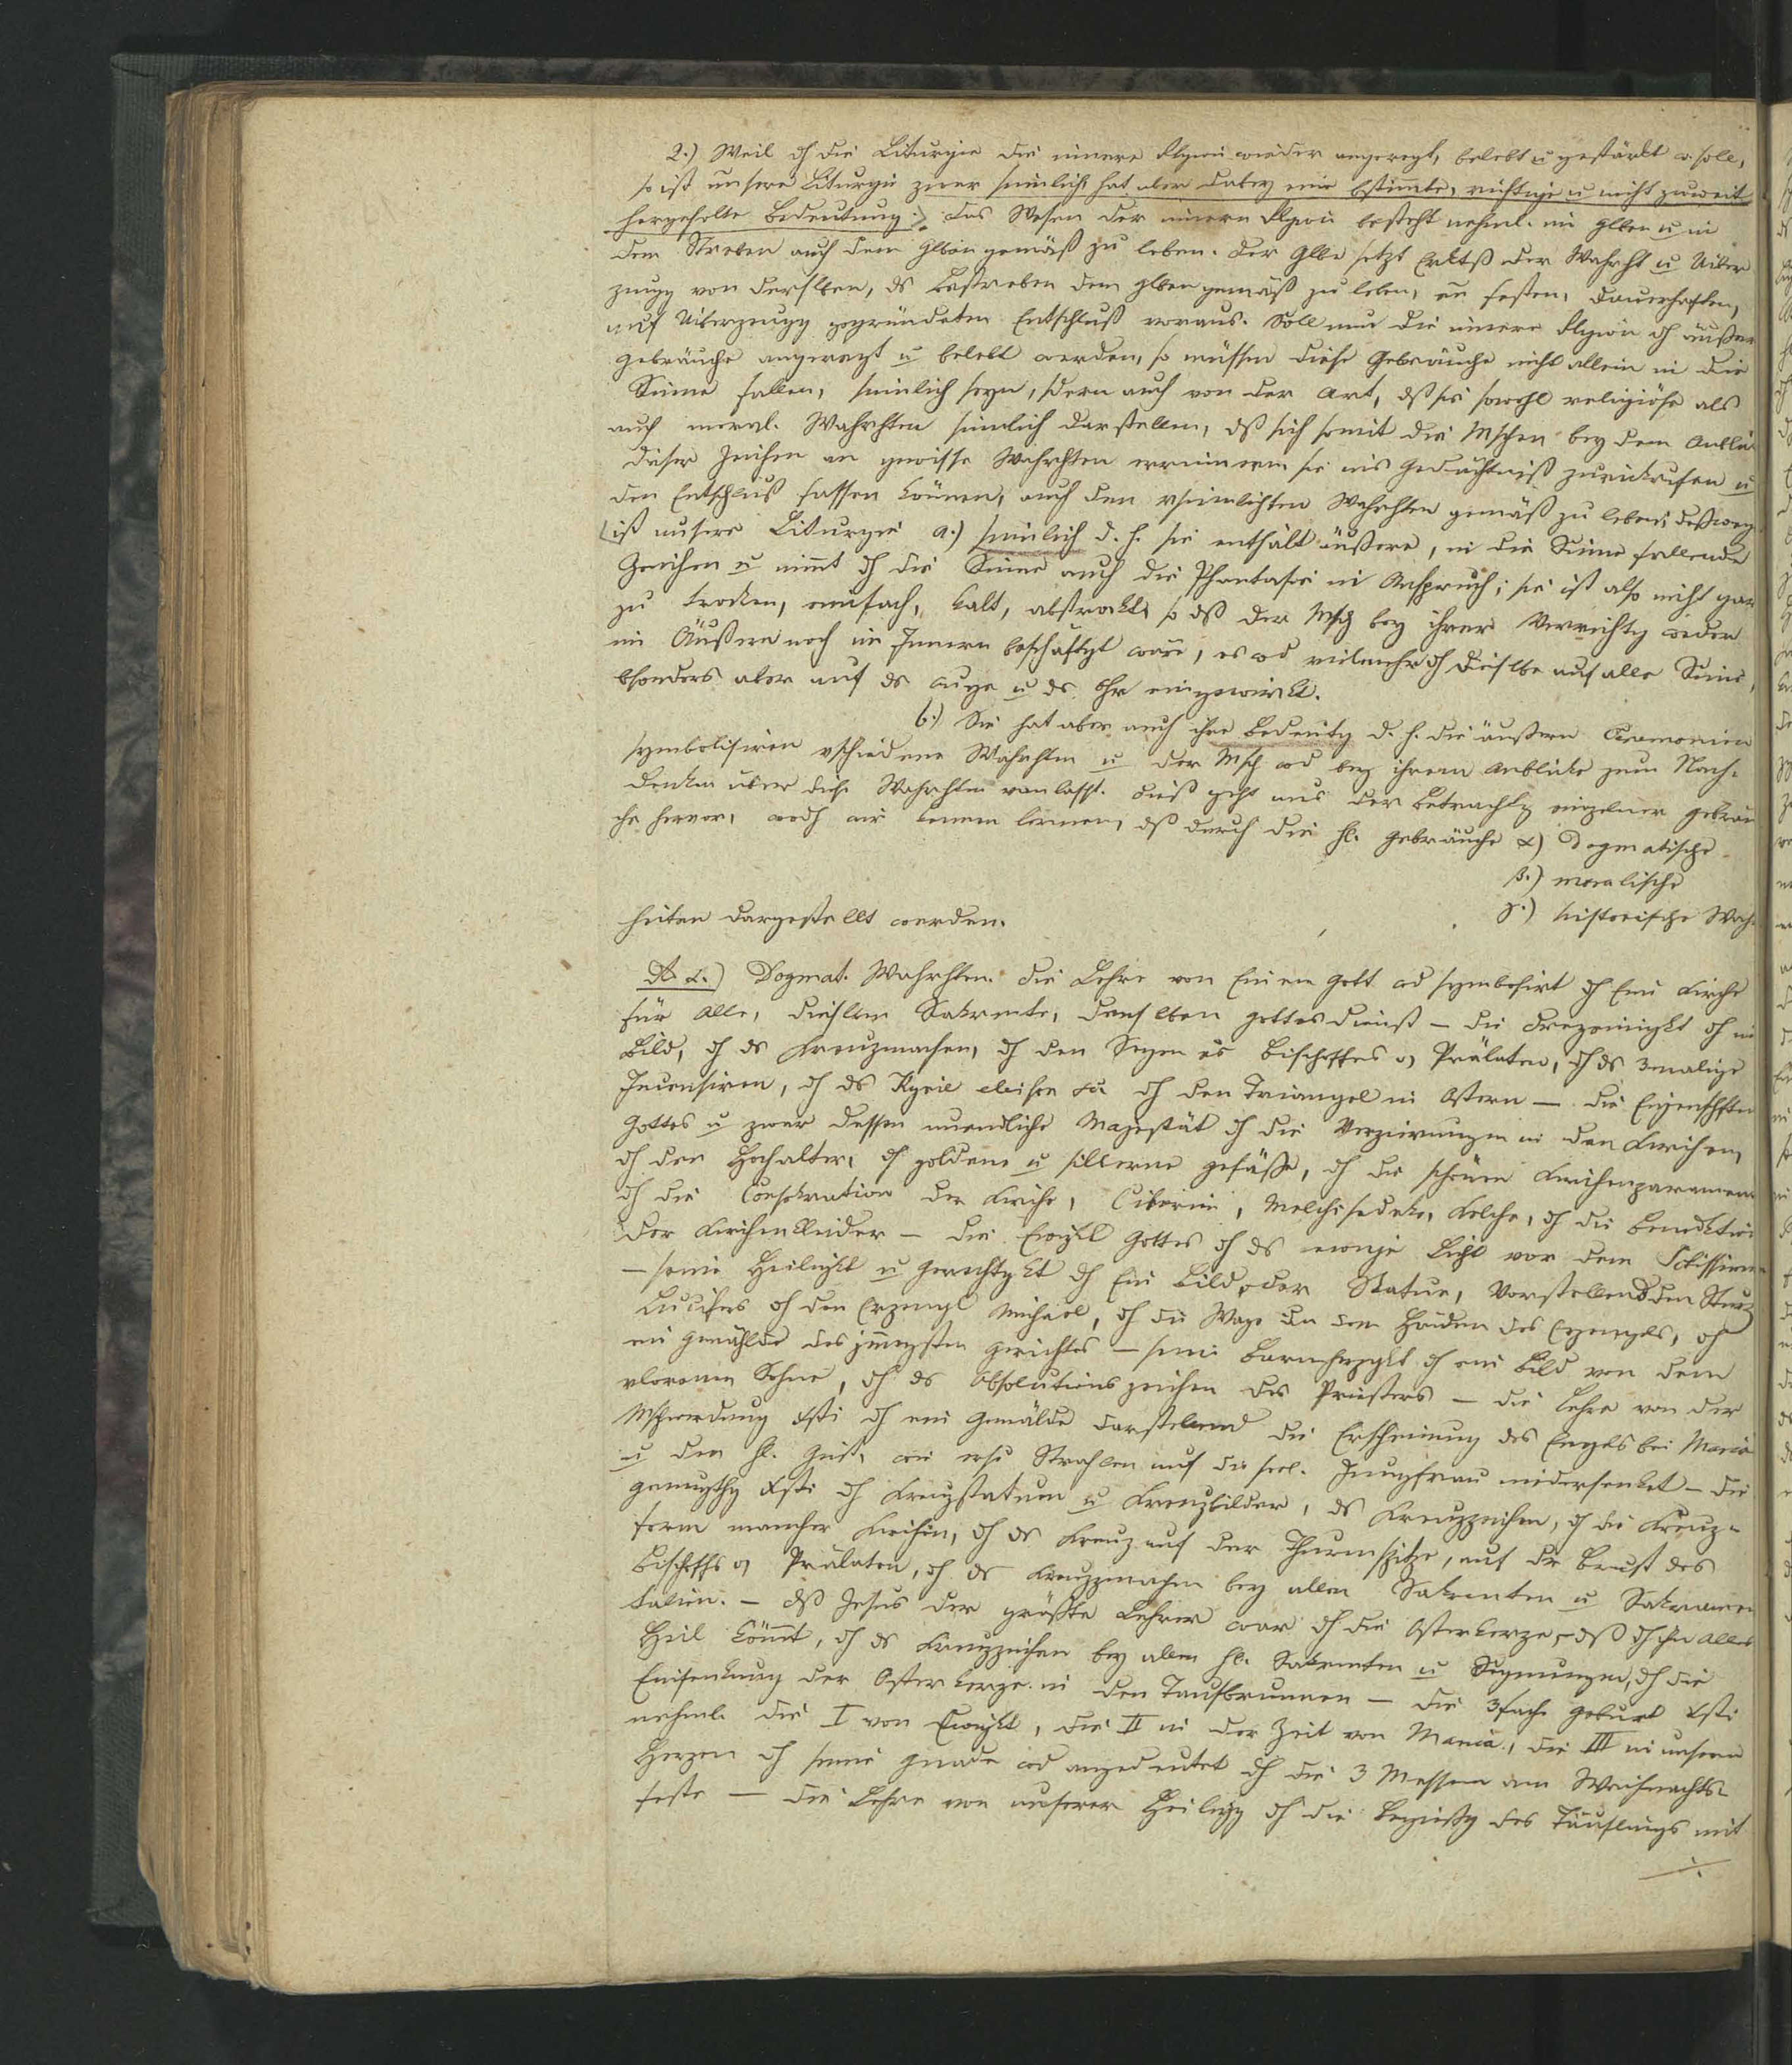 2.) Weil dh die Liturgie die innere Rlgion wieder angeregt, belebt u gestärkt w. soll,
so ist unsere Liturgie zwar sinnlich, hat aber dabey eine bstimmte, richtige u nicht zuweit
hergeholte Bedeutung. Das Wesen der innern Rlgion besteht nehml. im Glben u in
dem Streben auch dem Glben gemäß zu leben. Der Glbe setzt Erktß der Wahrht u Ueber
zeugg von derslben, ds Bestreben dem Glben gemäß zu leben, en festen, dauerhaften,
auf Ueberzeugg gegründeten Entschluß voraus. Soll nun die innere Rlgion dh äußere
Gebräuche angeregt u belebt werden, so müssen diese Gebräuche nicht allein in die
Sinne fallen, sinnlich seyn, sdern auch von der Art, dß sie sowohl religiöse als
auch moral. Wahrhten sinnlich darstellen, dß sich somit die Mschen bey dem Anblick
dieser Zeichen an gewisse Wahrhten erinnern sie ins Gedächtniß zurückrufen u
den Entschluß fassen können, auch den vsinnlichten Wahrhten gemäß zu leben; deßweg
ist unsere Liturgie a.) sinnlich d. h. sie enthält äußere, in die Sinne fallende
Zeichen u nimmt dh die Sinne auch die Phantasie in Anspruch; sie ist also nicht gar
zu trocken, einfach, kalt, abstrakt, so dß der Msch bey ihrer Verrichtg weder
im Äußern noch im Innern beschäftgt wäre, es wd vielmehr dh dieslbe auf alle Sinne,
bsonders aber auf ds Auge u ds Ohr eingewirkt.
b.) Sie hat aber auch ihre Bedeutg d. h. die äußern Ceremonien
symbolisiren vschiedene Wahrhten u der Msch wd bey ihrem Anblicke zum Nach-
denken über diese Wahrhten vanlasst. Dieß geht aus der Betrachtg einzelner Gebräu
che hervor, wodh wir kennen lernen, dß durch die hl. Gebräuche α) Dogmatische
β.) moralische
γ.) historische Wahr
heiten dargestellt werden.
Ad α.) Dogmat. Wahrhten. Die Lehre von Einem Gott wd symbolsirt dh Eine Kirche
für Alle, dieslben Sakrmente, denslben Gottesdienst – die Dreyeinigkt dh ein
Bild, dh ds Kreuzmachen, dh den Segen es Bischoffes od Prälaten, dh ds 3malige
Incensiren, dh ds Kyrie eleison &c dh den Triangel in Ostern – die Eigenschften
Gottes u zwar dessen unendliche Majestät dh die Verzierungen in den Kirchen,
dh den Hochalter, dh goldene u silberne Gefäße, dh die schönen Kirchenparamente
dh die Consekration der Kirche, Ciborien, Melchisedeke, Kelche, dh die Benediktion
der Kirchenkleider – die Ewigkt Gottes dh ds ewige Licht vor dem Sctissimum
– seine Heiligkt u Gerechtgkt dh Ein Bild oder Statue, Vorstellend den Sturz
Lucifers dh den Erzengel Michael, dh die Wage in den Händen des Erzengels, dh
ein Gemählde des jüngsten Gerichtes – seine Barmherzgkt dh ein Bild von dem
vlorenen Sohne, dh ds Absolutionszeichen des Priesters – die Lehre von der
Mschwerdung Xsti dh ein Gemälde darstellend die Erscheinung des Engels bei Maria
u den hl. Geist, wie er Strahlen auf die seel. Jungfrau niedersenket – die
Genugthg Xsti dh Kreuzstatuen u Kreuzbilder, ds Kreuzzeichen, dh die Kreuz-
form mancher Kirchen, dh ds Kreuz auf der Thurmspitze, auf der Brust des
Bischoffs od Prälaten, dh ds Kreuzzmachen bey allen Sakrmenten u Sakramen
talien. – dß Jesus der größte Lehrer war dh die Osterkerze, – dß dh ihn alles
Heil kömmt, dh ds Kreuzzeichen bey allen hl. Sakrmenten u Segnungen, dh die
Einsenkung der Osterkerze in den Taufbrunnen – die 3fache Geburt Xsti
nehml. die I von Ewigkt, die II in der Zeit von Maria, die III in unsern
Herzen dh seine Gnade wd angedeutet dh die 3 Messen am Weihnachts-
feste – die Lehre von unserer Heiligg dh die Begießg des Täuflings mit